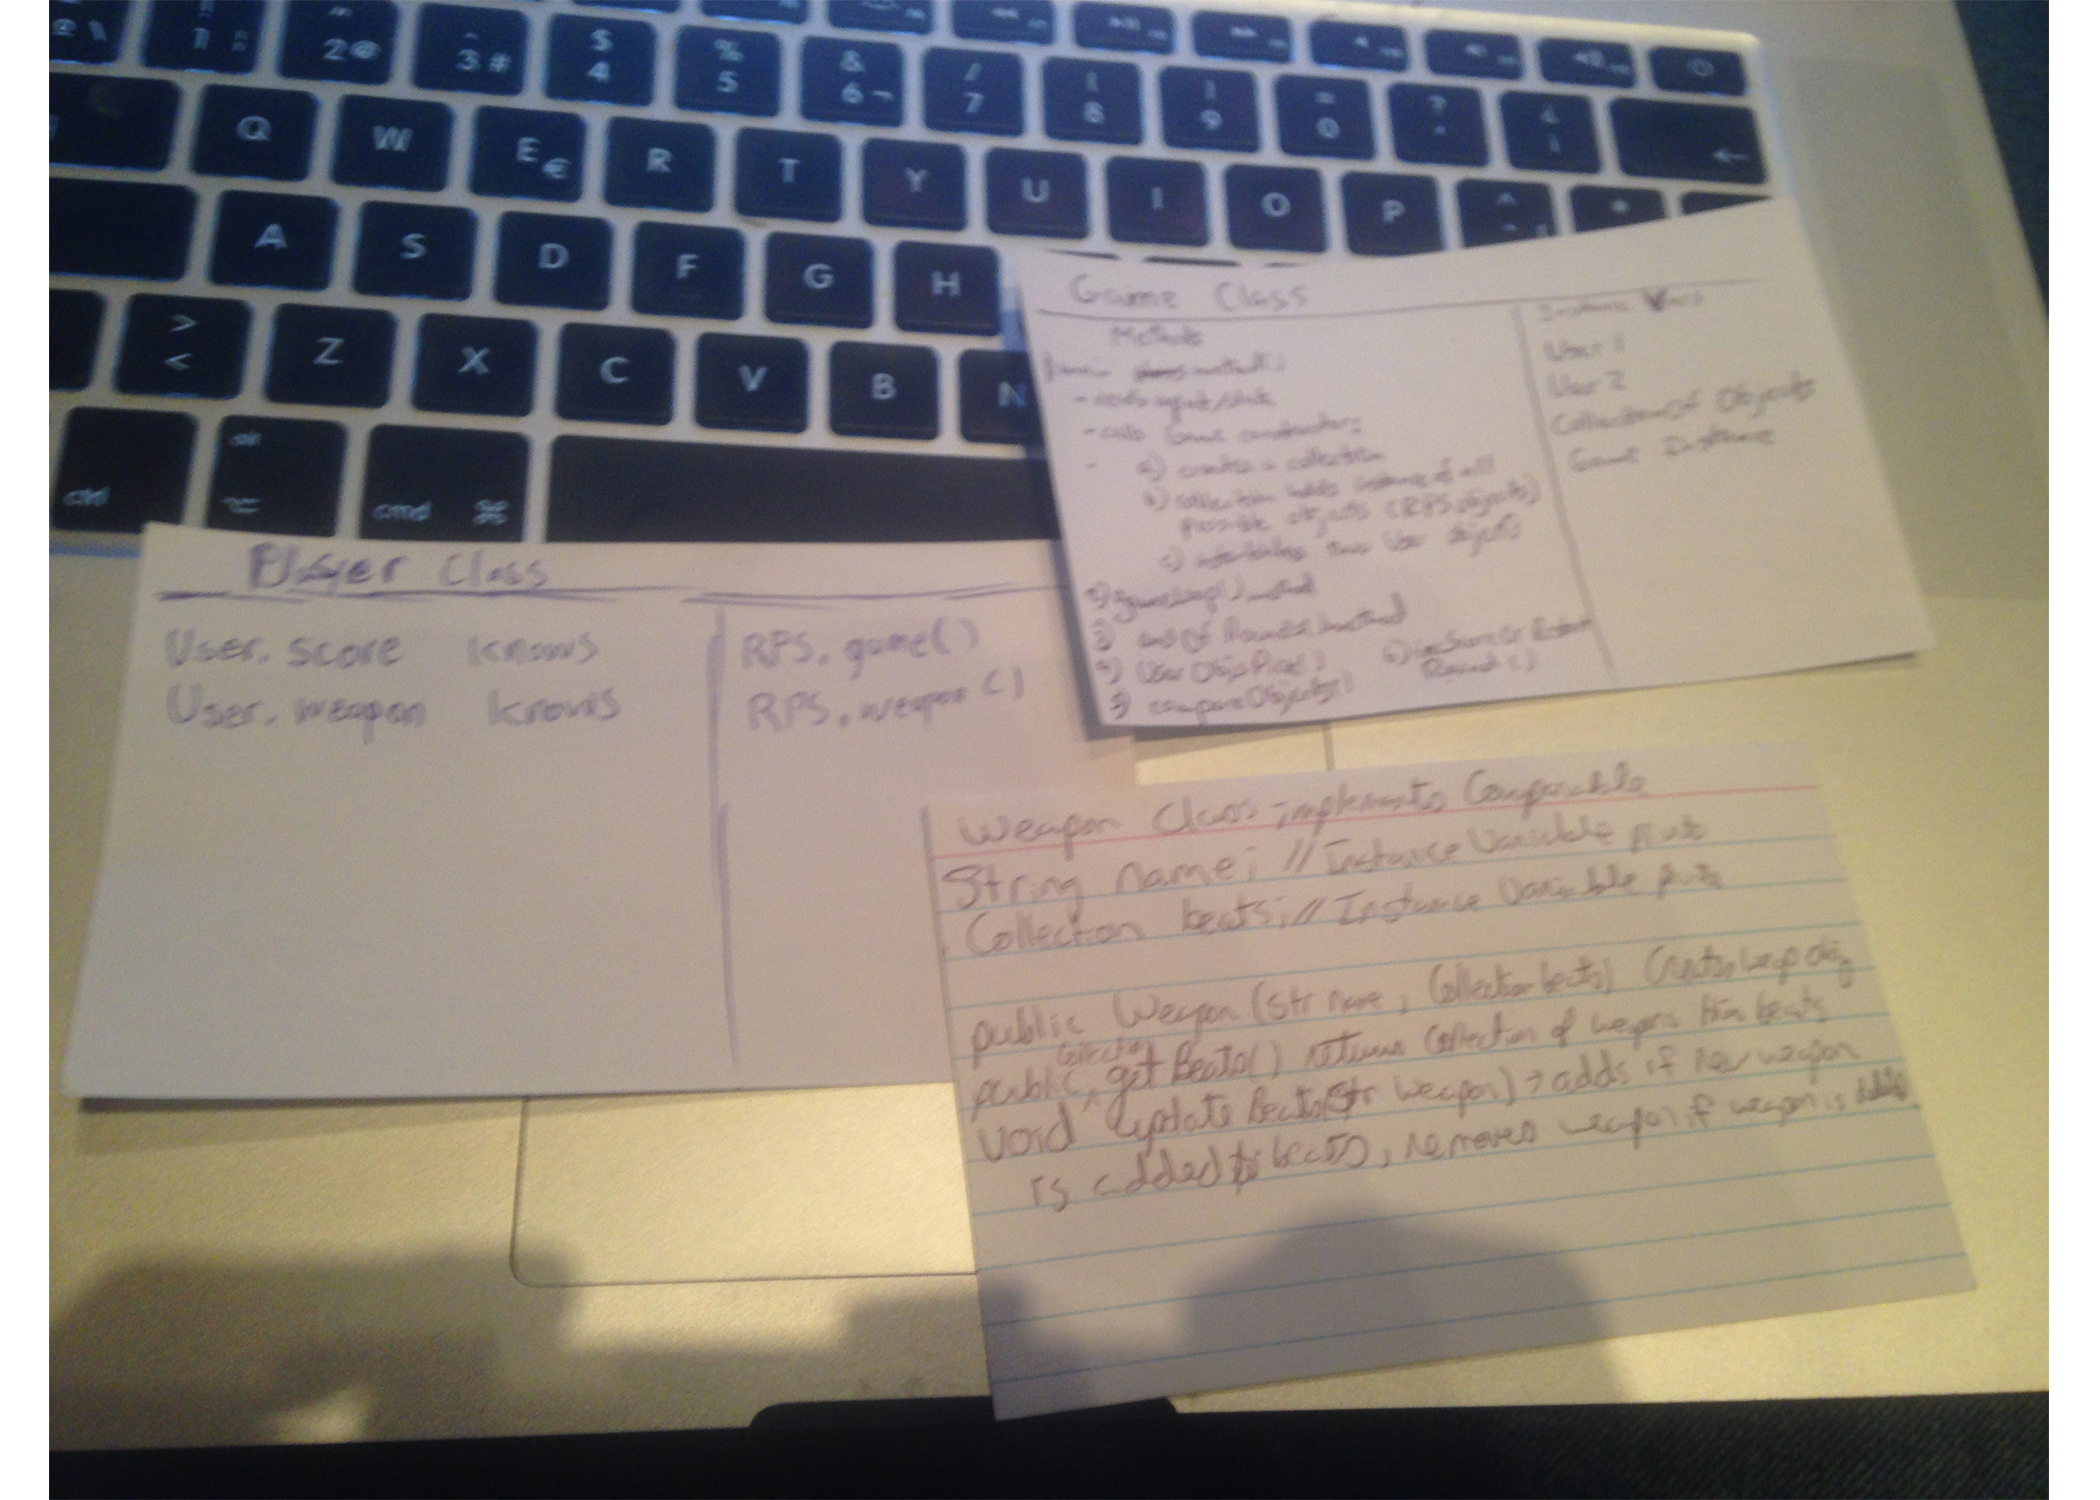 1
2 @
3 #
$ 4
% 5
& 6 ¬
/ 7
( 8
) 9
= 0
?
¿ ¡
Q W E € R T Y U I O P ^ *
A S D F G H
> < Z X C V B N
ctrl
alt ⌥
cmd ⌘
Game Class
Methods
method()
- calls Game constructor;
a) creates a collection
b) collection holds instance of all
possible objects (RPS objects)
c) two User objects
2) gameLoop() method
3) endOfRound() method
4) UserObjPick()
5) compareObjects()
6)
Round()
Instance Vars
User 1
User 2
Collection of Objects
Game Instance
Player Class
User. score knows
User. weapon knows
RPS. game()
RPS. weapon()
Weapon Class implements Comparable
String name; // Instance Variable
Collection beats; // Instance Variable
public Weapon (Str name, Collection beats) Creates weap obj
public Collection getBeats() returns Collection of weapons beats
void updateBeats(Str weapon) → adds if new weapon
is added to beats, removes weapon if weapon is